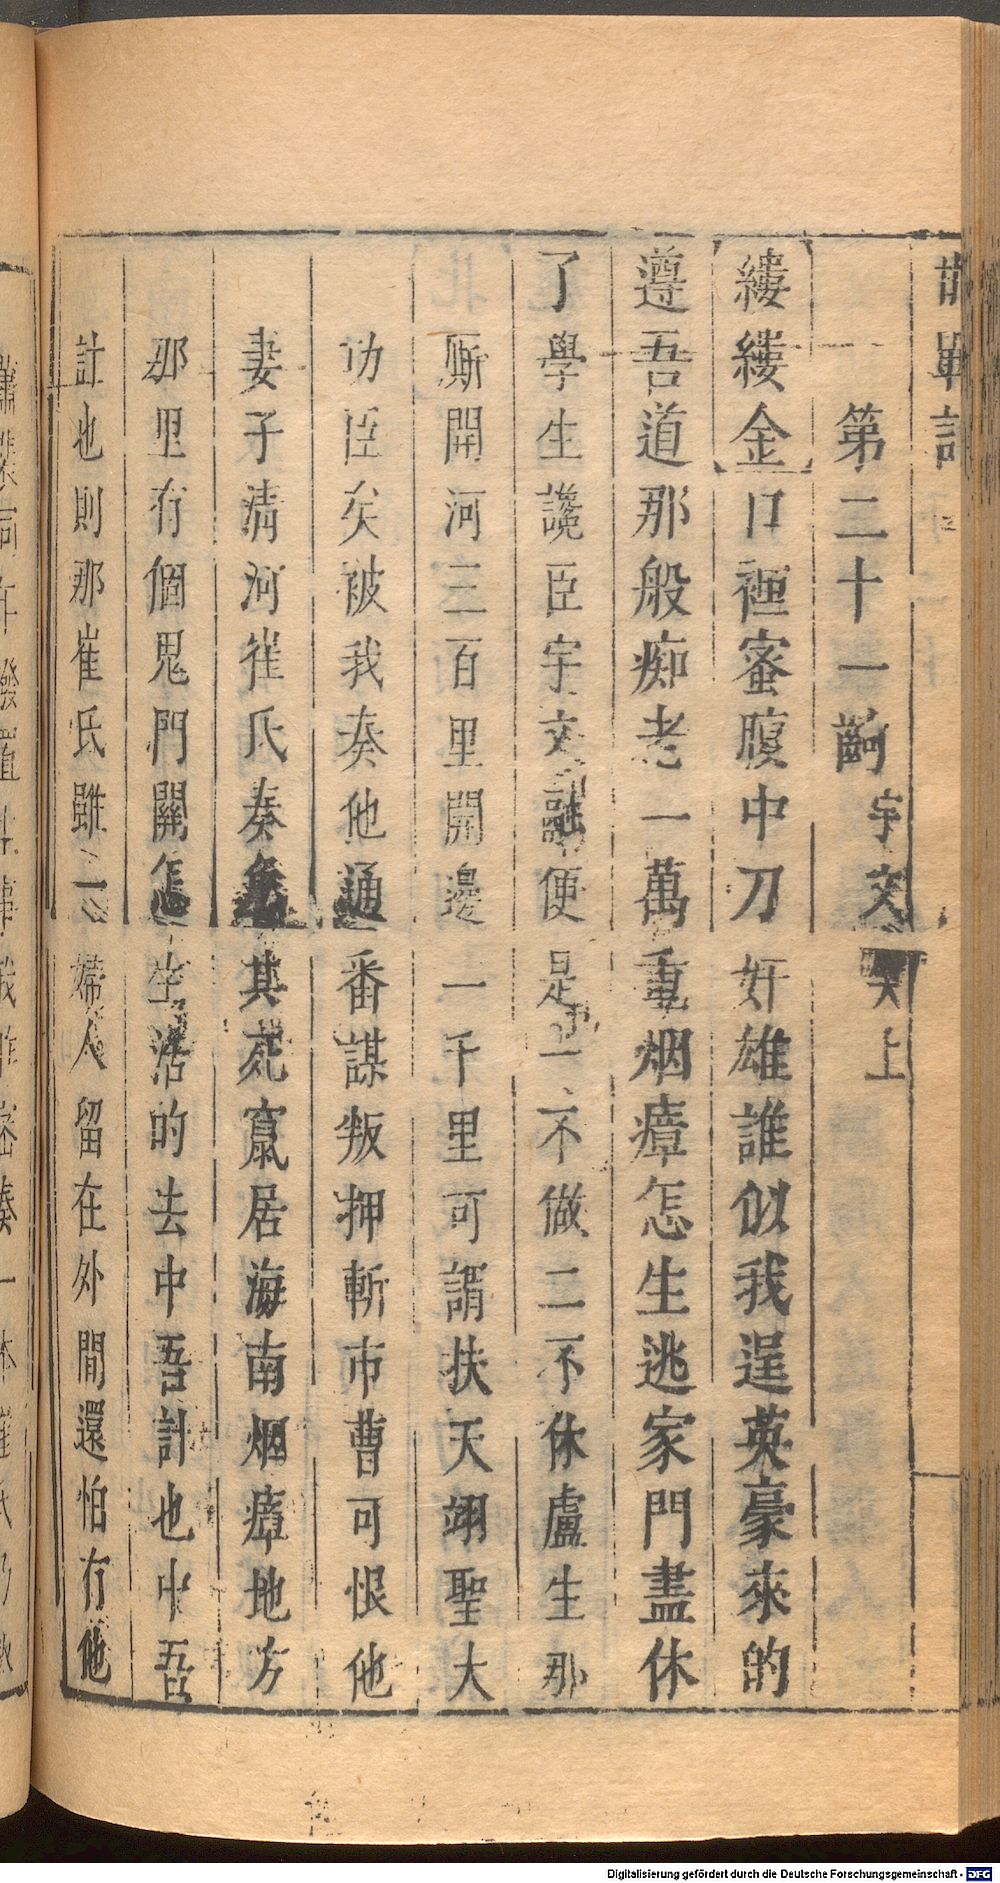 邯鄲記
第二十一齣 宇文笑上
縷縷金 口裡蜜腹中刀奸雄誰似我逞英豪來的
遵吾道那般痴老一萬重烟瘴怎生逃家門盡休
了學生讒臣宇文融便是一不做二不休盧生那
厮開河三百里開邊一千里可謂扶天翊聖大
功臣矣被我奏他通番謀叛押斬市曹可恨他
妻子清河崔氏奏免其死竄居海南烟瘴地方
那里有個鬼門關怎生活的去中吾計也中吾
計也則那崔氏雖一婦人留在外間還怕有他
Digitalisierung gefördert durch die Deutsche Forschungsgemeinschaft - DFG